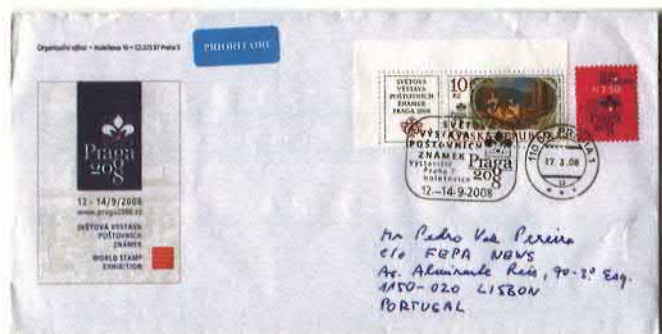 Organizační výbor • Holečkova 10 • CZ-225 07 Praha 5
PRIORITAIRE
Praga
2008
12 - 14/9/2008
www.praga2008.cz
SVĚTOVÁ VÝSTAVA
POŠTOVNÍCH
ZNÁMEK
WORLD STAMP
EXHIBITION
SVĚTOVÁ
VÝSTAVA
POŠTOVNÍCH
ZNÁMEK
PRAGA 2008
10
Kč
SVĚTOVÁ
VÝSTAVA
POŠTOVNÍCH
ZNÁMEK
Výstaviště
Praha 7
Holešovice
Praga
2008
12.–14.9.2008
Praga
PRAHA 1
17. 3. 08
Mr Pedro Vaz Pereira
c/o FEPA NEWS
Av. Almirante Reis, 70-3º Esq.
1150-020 LISBON
PORTUGAL